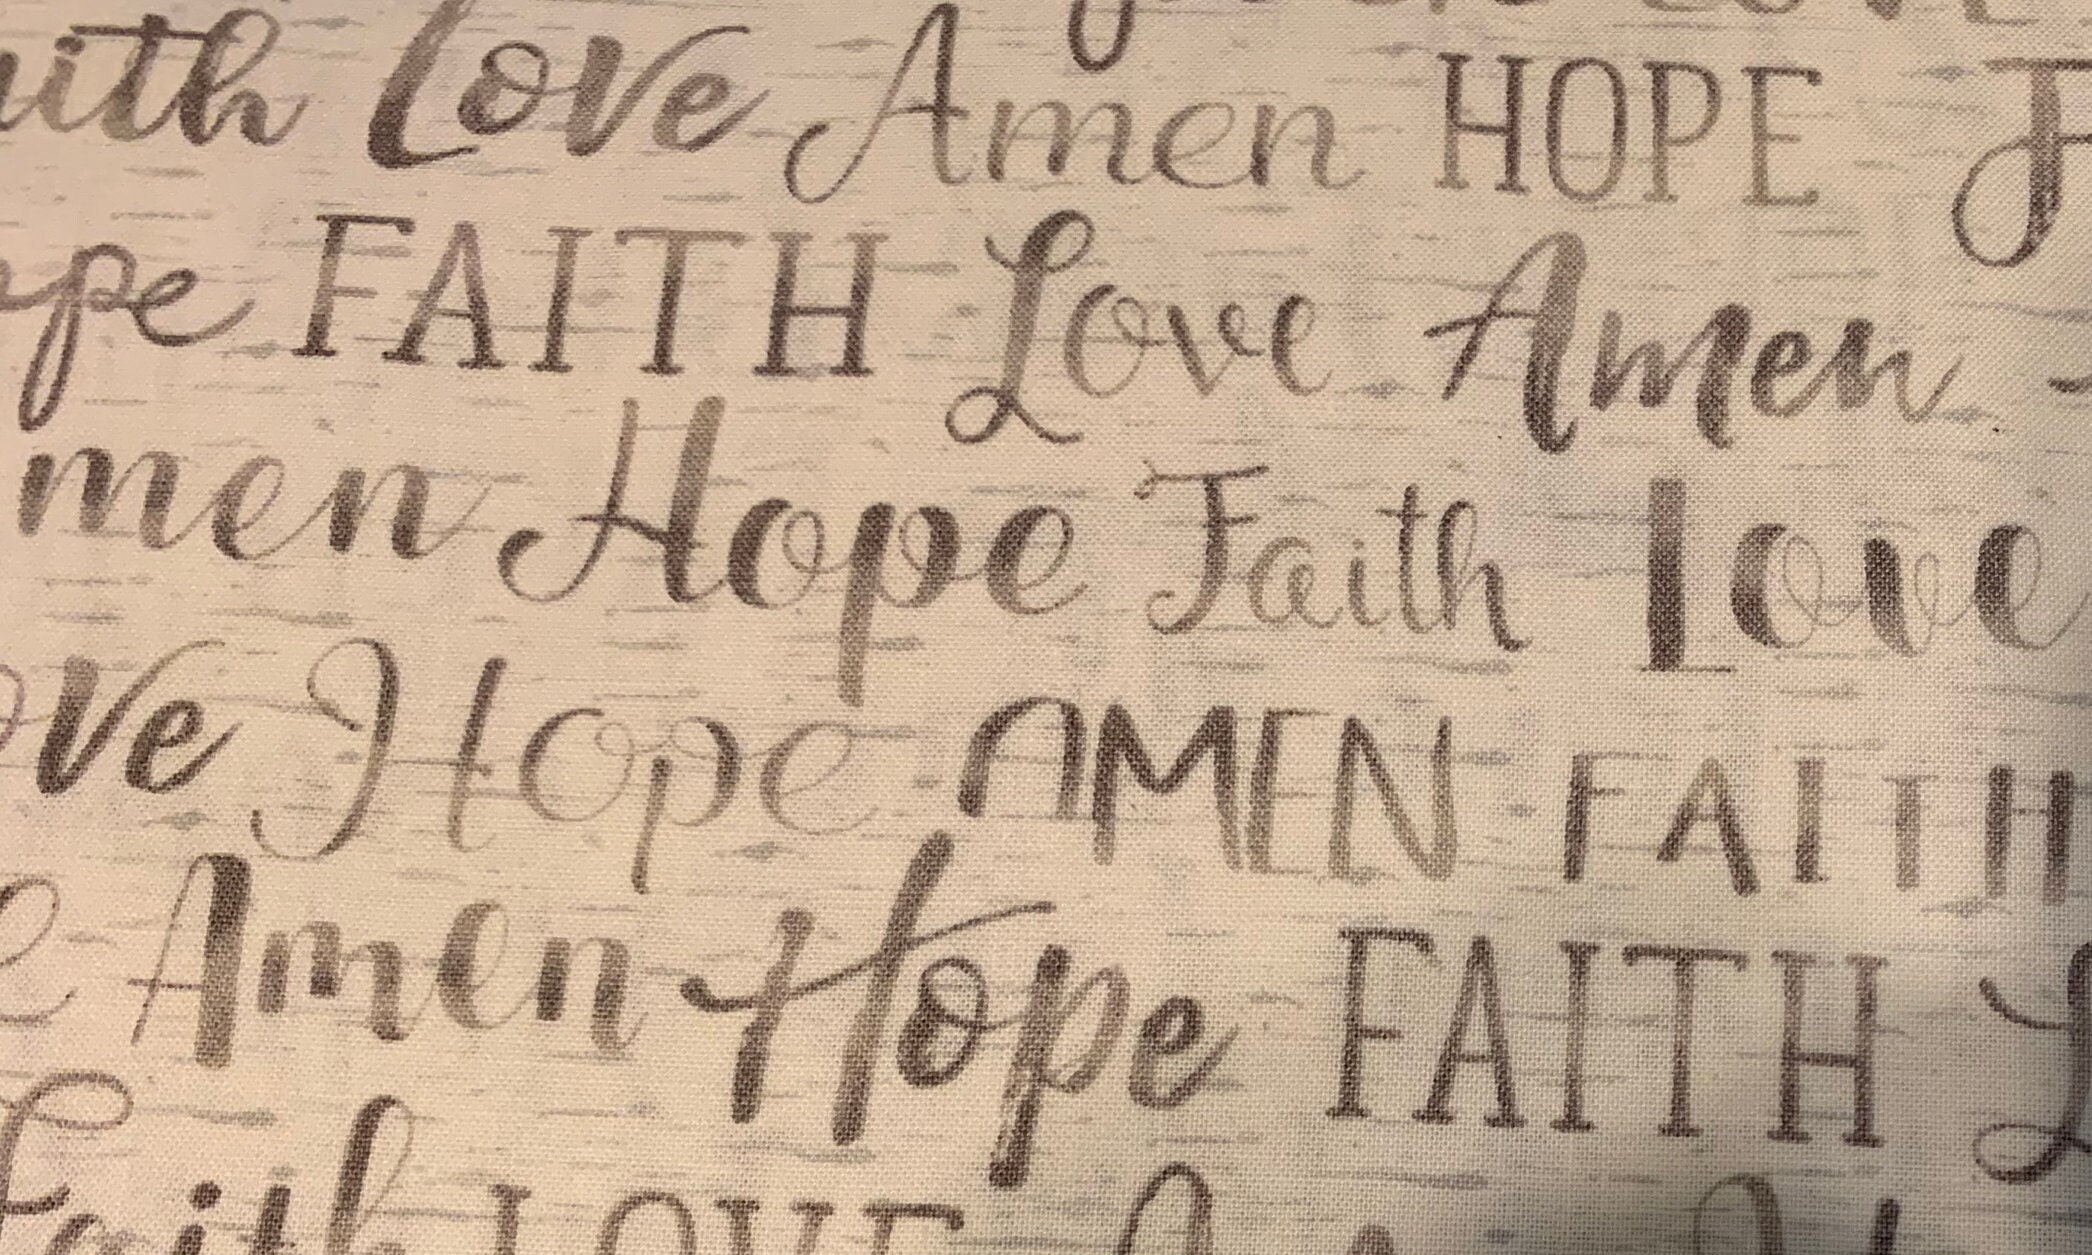 aith Love Amen HOPE F
ope FAITH Love Amen
men Hope Faith Love
ove Hope AMEN FAITH
e Amen Hope FAITH L
Faith LOVE